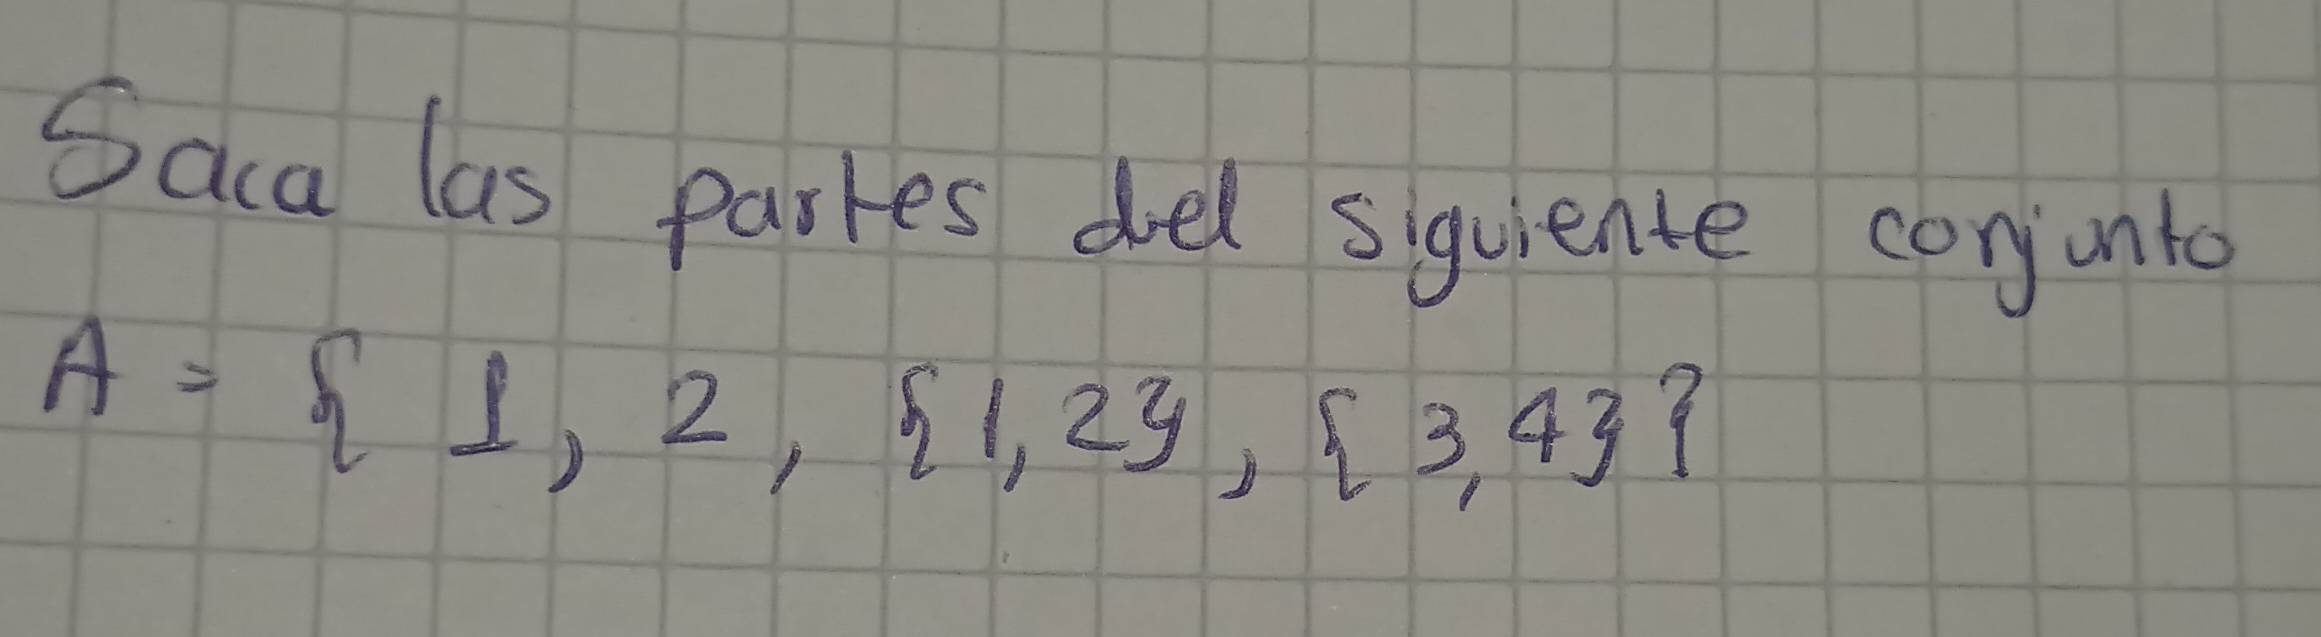 Saca las partes del siguiente conjunto
A = { 1, 2, {1,2}, {3,4}}